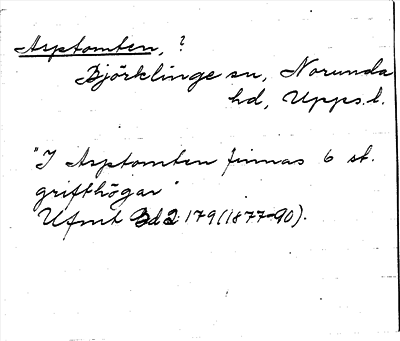 Arptomten, ?
Björklinge sn, Norunda
hd, Upps.l.
"I Arptomten finnas 6 st.
grifthögar"
Ufmt Bd 2 179 (1877-90).